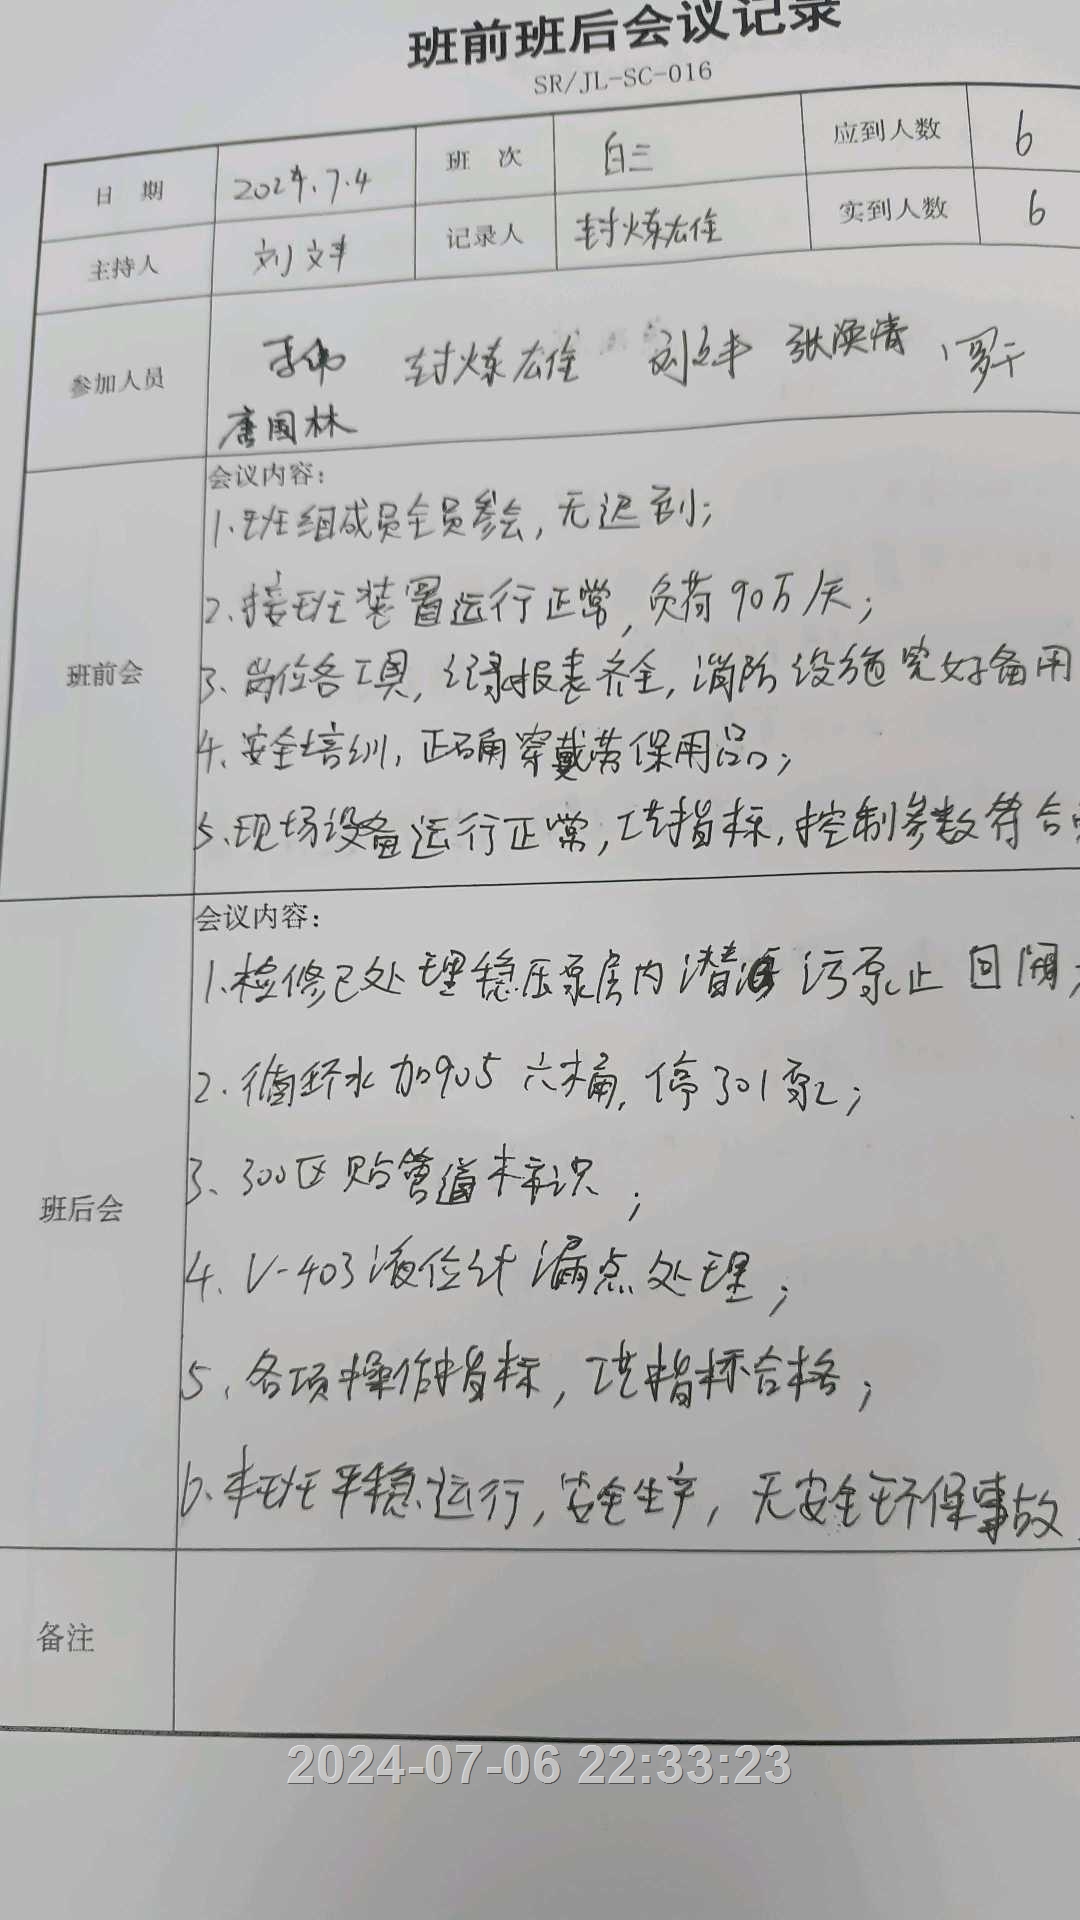 班前班后会议记录
SR/JL-SC-016
日 期 2024.7.4 班 次 白三 应到人数 6
主持人 刘文丰 记录人 封炼宏佳 实到人数 6
参加人员 李伟 封炼宏佳 刘文丰 张焕情
唐国林
班前会
会议内容:
1.班组成员全员参会,无迟到;
2.接班装置运行正常,负荷90万/天;
3.岗位各工具,纪录报表齐全,消防设施完好备用
4.安全培训,正确穿戴劳保用品;
5.现场设备运行正常,工艺指标,控制参数符合
班后会
会议内容:
1.检修已处理稳压泵房内潜污泵止回阀;
2.循环水加905六桶,停301泵;
3.300区贴管道标识;
4.V-403液位计漏点处理;
5.各项操作指标,工艺指标合格;
6.本班平稳运行,安全生产,无安全环保事故
备注
2024-07-06 22:33:23